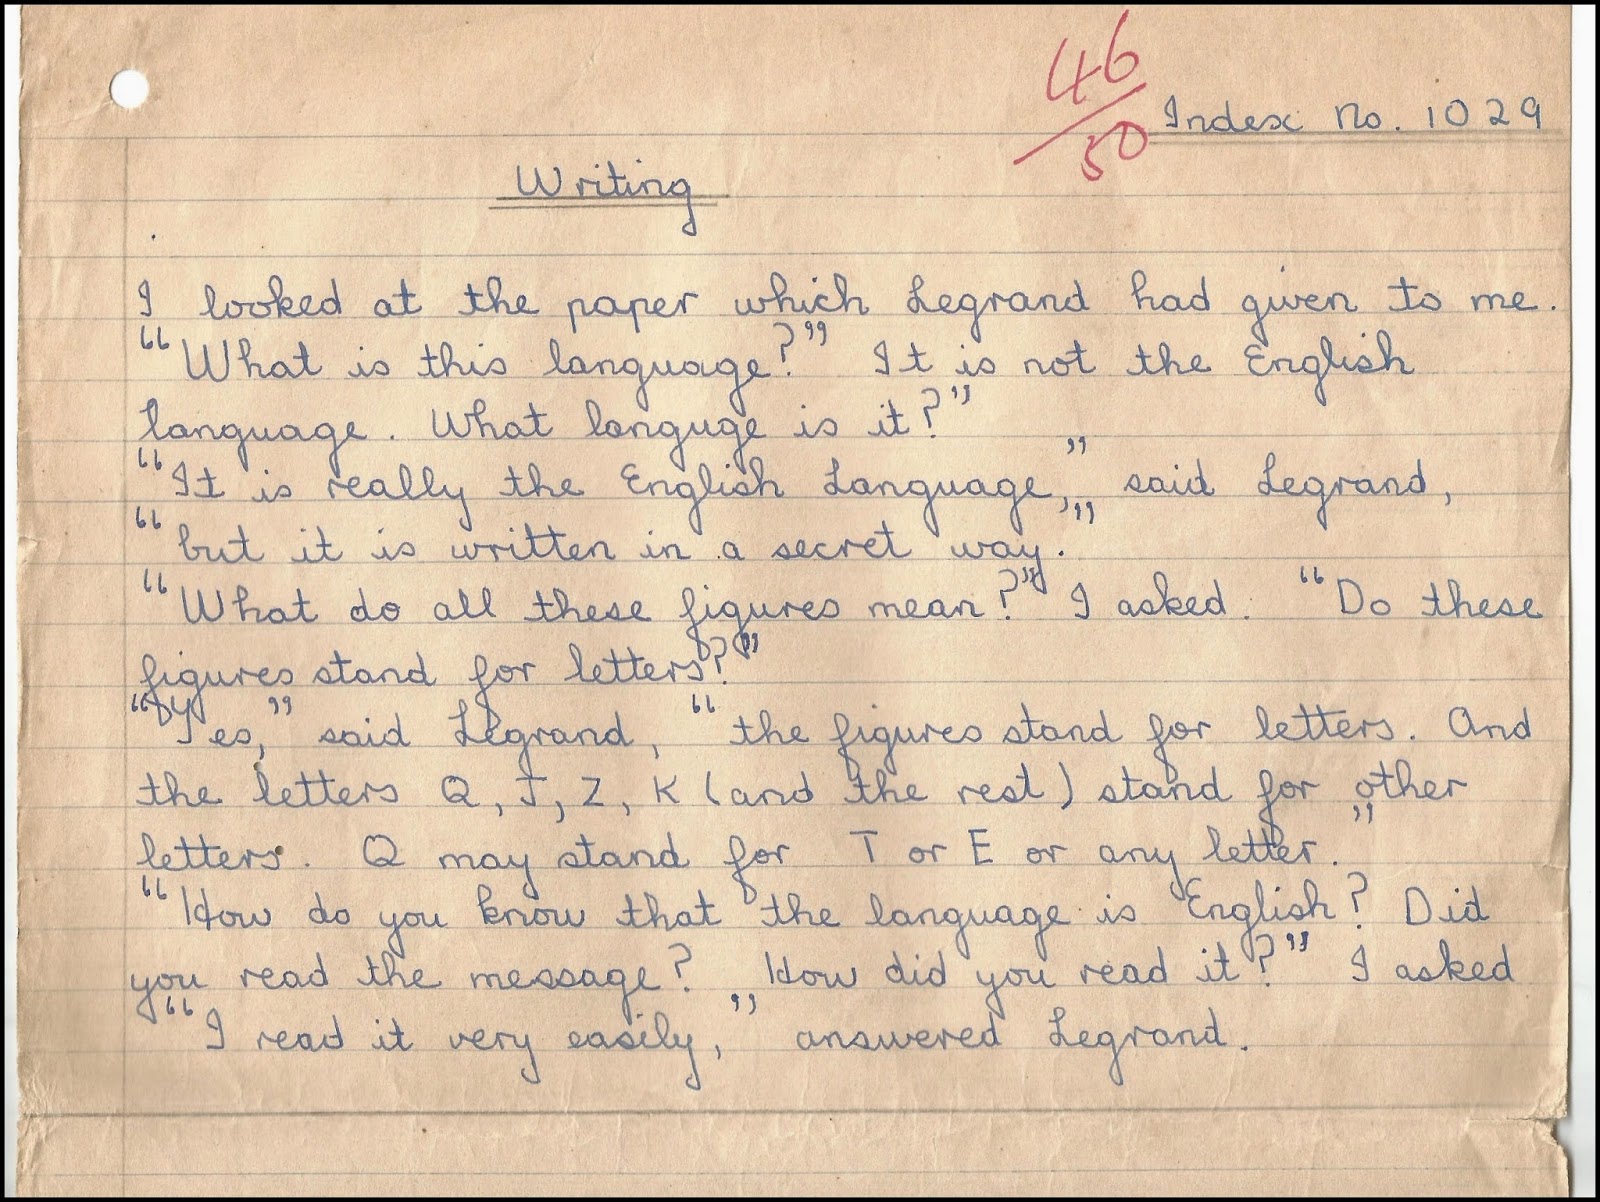 46/50
Index No. 1029
Writing
I looked at the paper which Legrand had given to me.
“What is this language?” It is not the English
language. What languge is it?”
“It is really the English Language,” said Legrand,
“but it is written in a secret way.”
“What do all these figures mean?” I asked. “Do these
figures stand for letters?”
“Yes,” said Legrand, “the figures stand for letters. And
the letters Q, J, Z, K (and the rest) stand for other
letters. Q may stand for T or E or any letter.”
“How do you know that the language is English? Did
you read the message? How did you read it?” I asked
“I read it very easily,” answered Legrand.